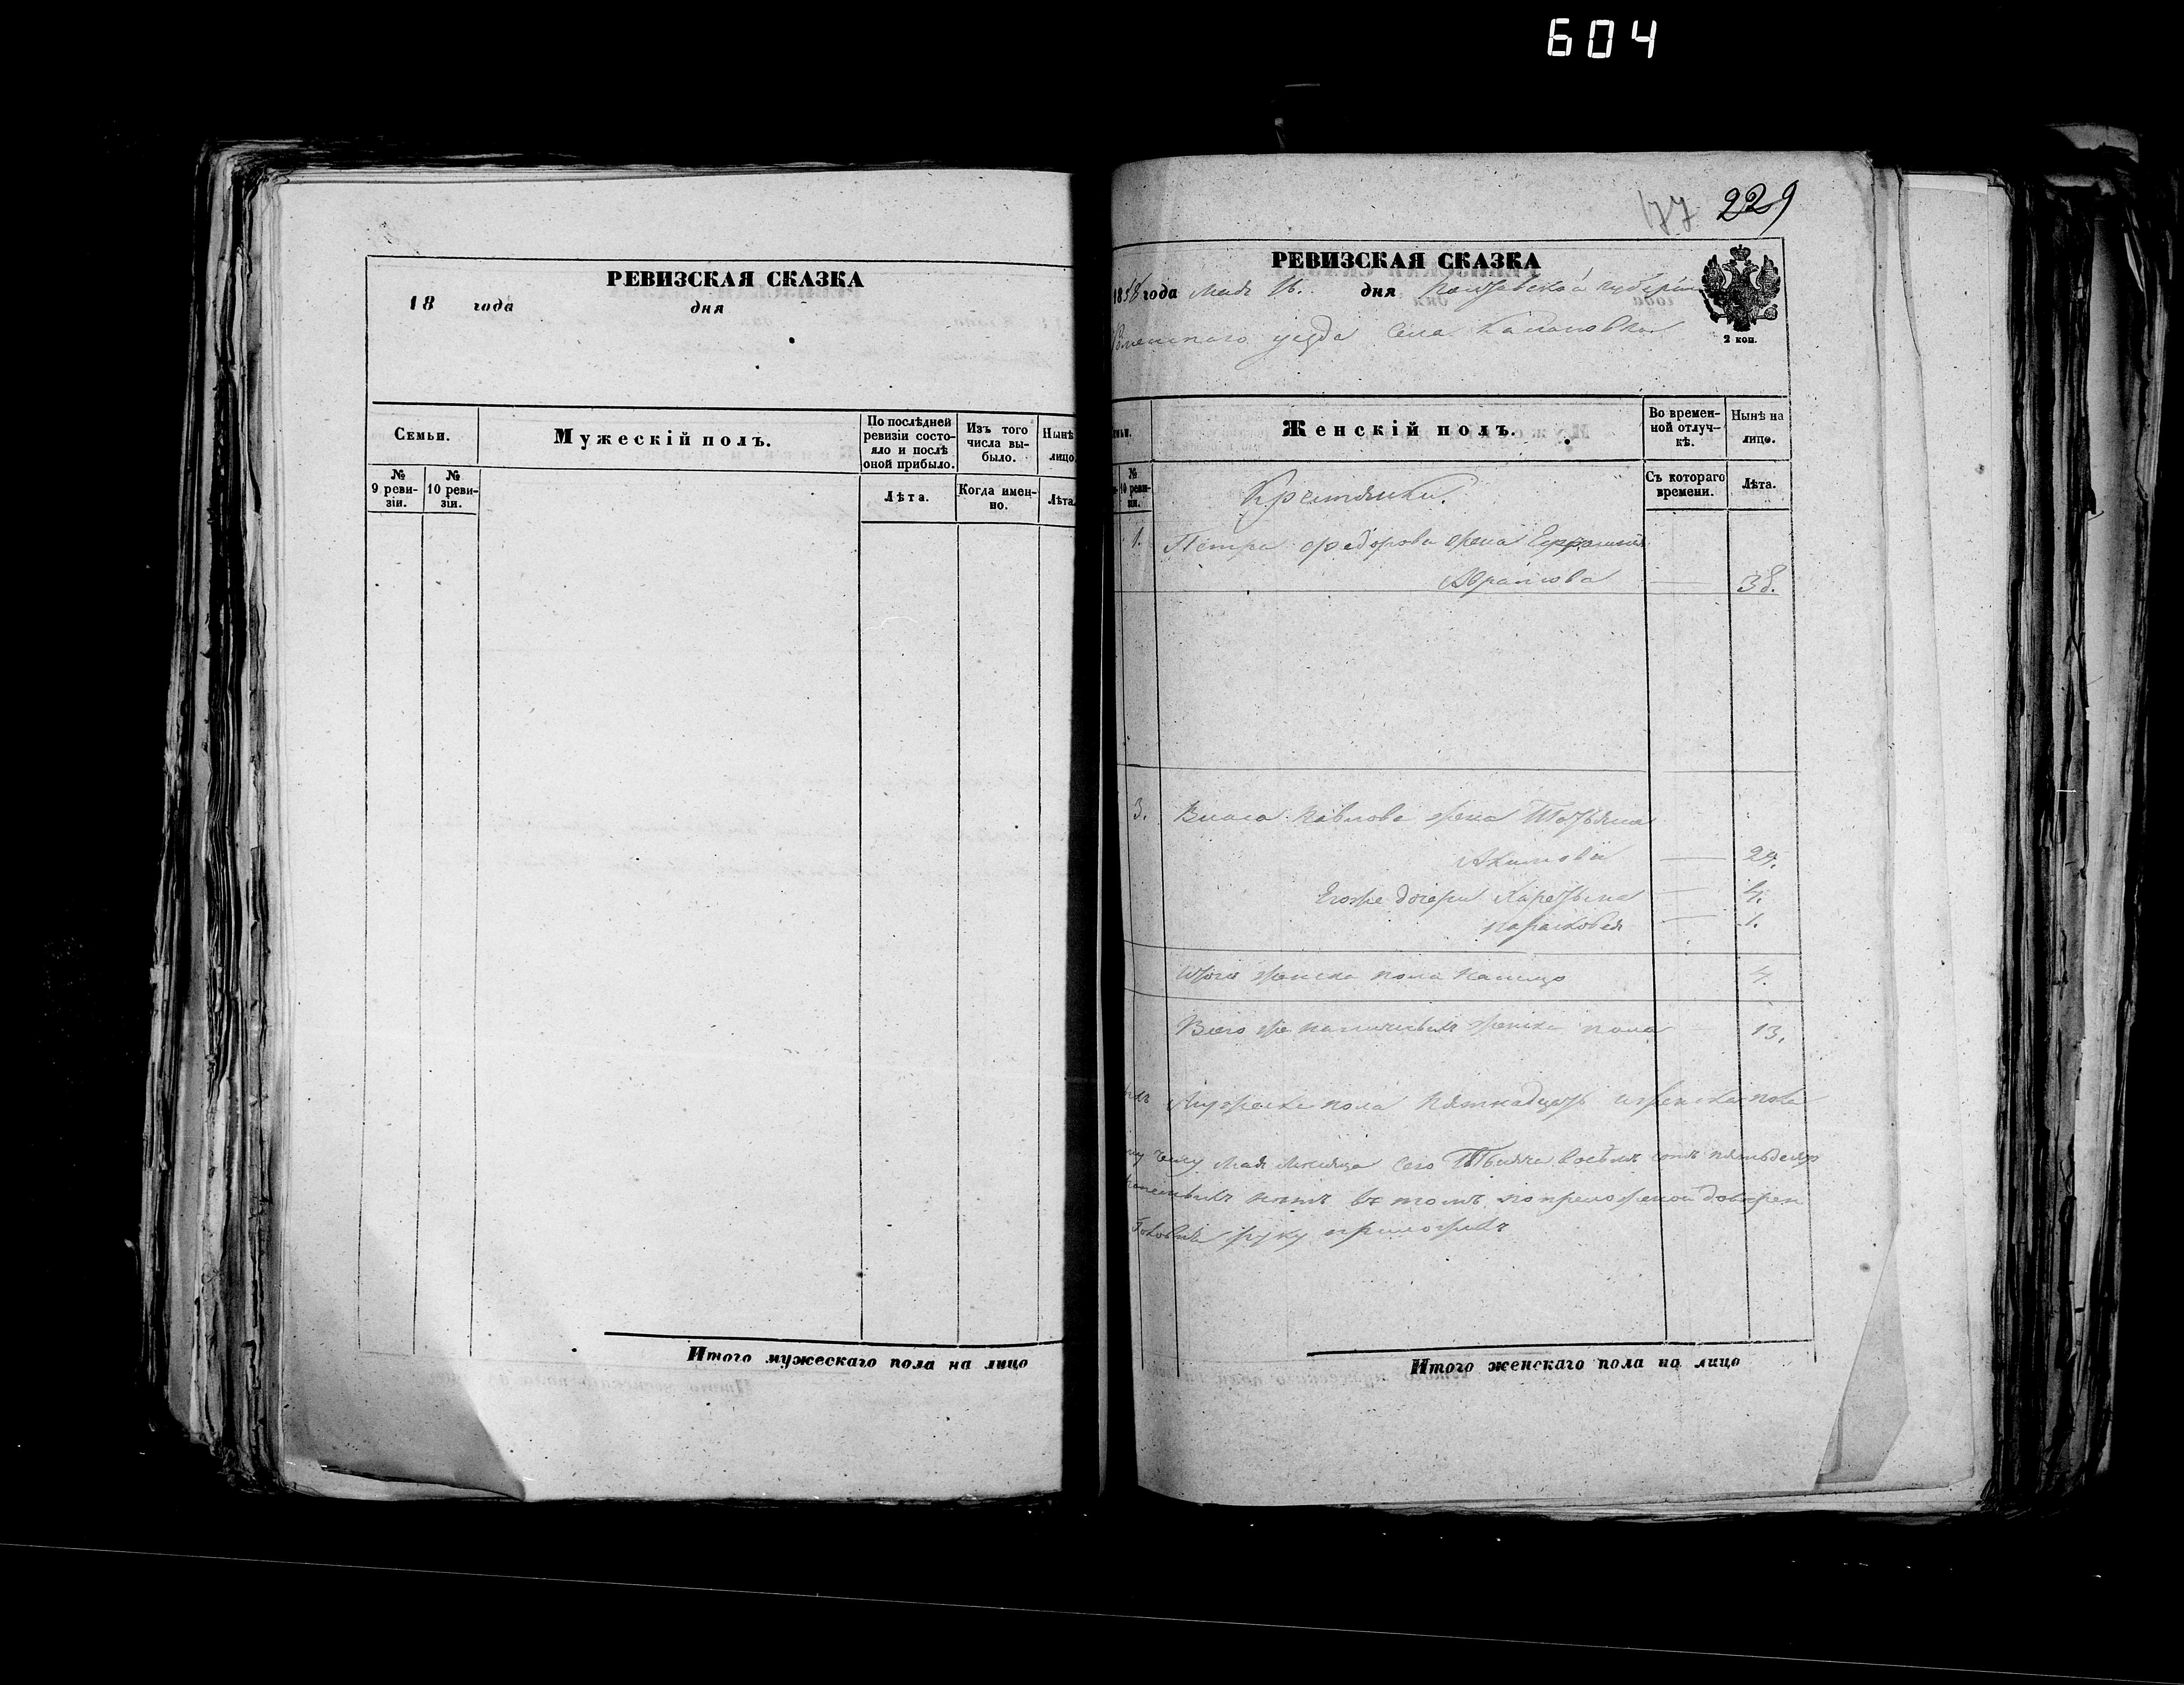 604
РЕВИЗСКАЯ СКАЗКА
18 года дня
Семьи.
Мужескій полъ.
По послѣдней ревизіи состояло и послѣ оной прибыло.
Изъ того числа выбыло.
Нынѣ
лицо
№ 9 ревизіи.
№ 10 ревизіи.
Лѣта.
Когда именно.
Лѣта.
Итого мужескаго пола на лицо
177 229
РЕВИЗСКАЯ СКАЗКА
1858 года Мая 16. дня Полтавской губерніи
уезда Села
2 коп.
Женскій полъ.
Во временной отлучкѣ.
Нынѣ на лицо.
№ 10 ревизіи.
Съ котораго времени.
Лѣта.
Крестьянки.
1. Петра Федорова жена
Абрамова 38.
3. Власа Павлова жена Татьяна
Акимова 29.
Егоже дочери 4.
Парасковея 1.
Итого женска пола налицо 4.
Всего же наличныхъ женска пола 13.
Мужеска пола пятнадцать и женска пола
Мая месяца сего Тысяча восемь сотъ пятьдесят
нетъ въ томъ по предложеной доверен
руку приложилъ
Итого женскаго пола на лицо